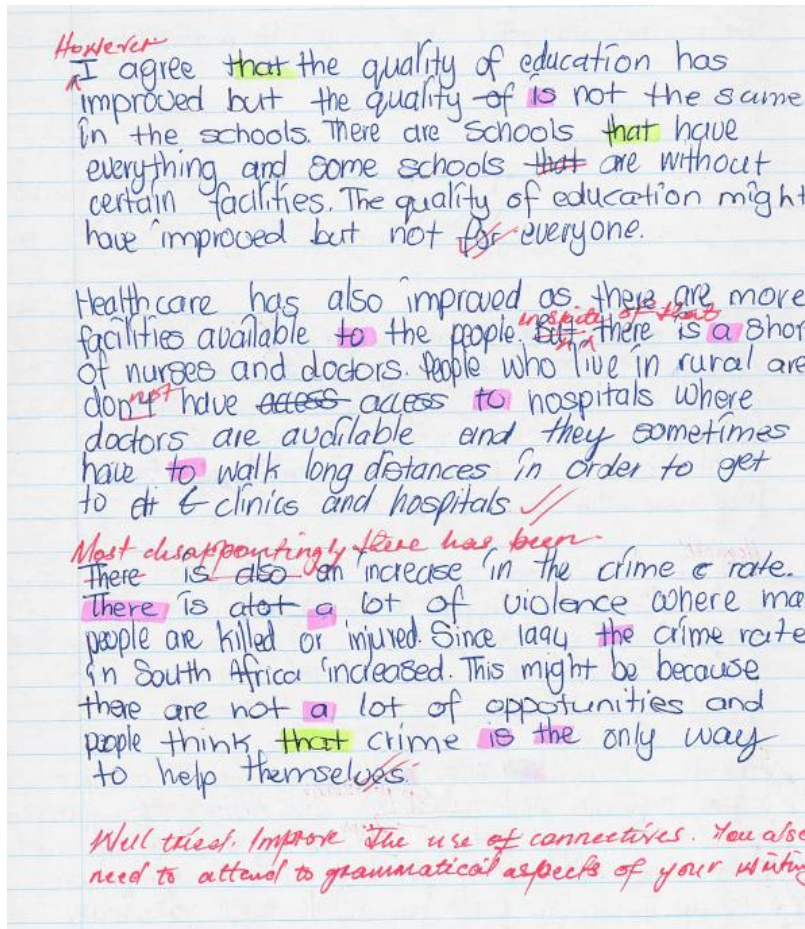 However
I agree that the quality of education has
improved but the quality of is not the same
in the schools. There are schools that have
everything and some schools that are without
certain facilities. The quality of education might
have improved but not for everyone.
Healthcare has also improved as there are more
facilities available to the people. inspite of that
But there is a shor
of nurses and doctors. People who live in rural are
don't not have access access to hospitals where
doctors are available and they sometimes
have to walk long distances in order to get
to clinics and hospitals
Most disappointingly there has been
There is also an increase in the crime rate.
There is alot a lot of violence where ma
people are killed or injured. Since 1994 the crime rate
in South Africa increased. This might be because
there are not a lot of oppotunities and
people think that crime is the only way
to help themselves.
Well tried. Improve the use of connectives. You also
need to attend to grammatical aspects of your writing